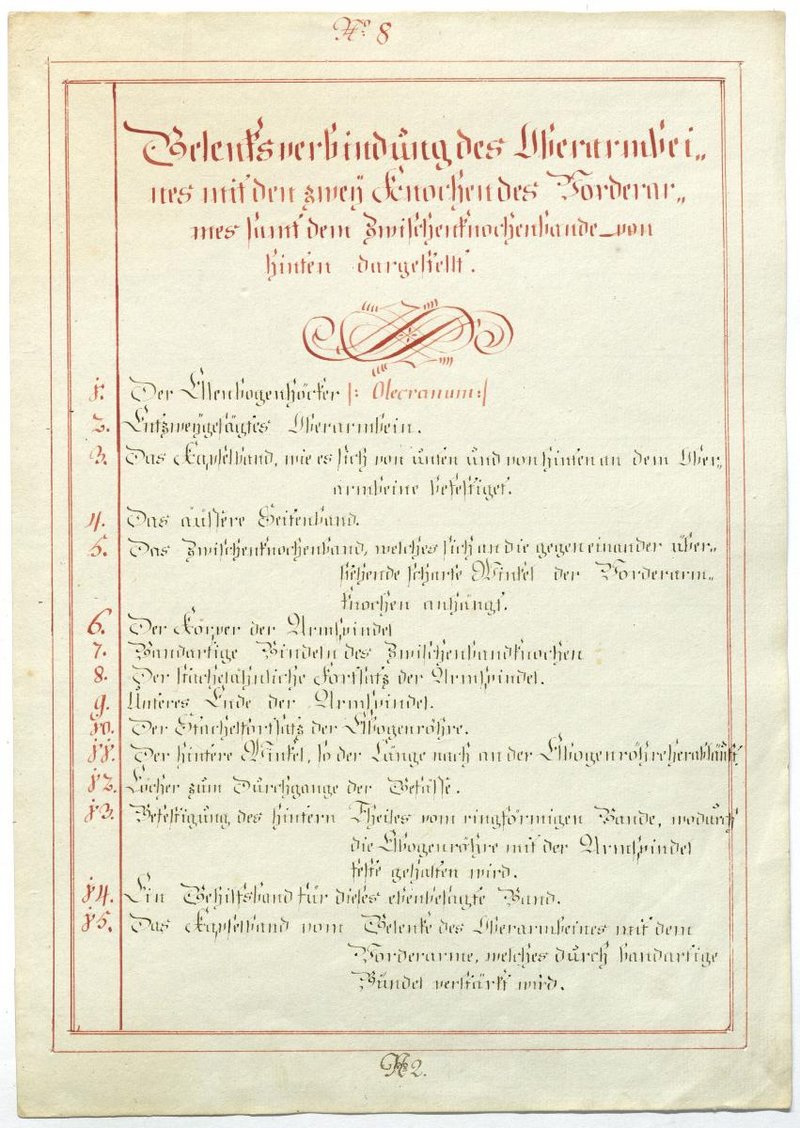 No 8
Gelenksverbindung des Oberarmbei„
nes mit den zweÿ Knochen des Vorderar„
mes samt dem Zwischenknochenbande von
hinten dargestellt.
1. Der Ellenbogenhöcker |: Olecranum :|
2. Entzweÿgesägtes Oberarmbein.
3. Das Kapselband, wie es sich von unten und von hinten an dem Ober„
armbeine befestiget.
4. Das äussere Seitenband.
5. Das Zwischenknochenband, welches sich an die gegen einander über„
stehende scharfe Winkel der Vorderarm„
knochen anhängt.
6. Der Körper der Armspindel
7. Bandartige Bindeln des Zwischenbandknochen
8. Der stachelähnliche Fortsatz der Armspindel.
9. Unteres Ende der Armspindel.
10. Der Stachelfortsatz der Elbogenröhre.
11. Der hintere Winkel, so der Länge nach an der Elbogenröhre herabläuft
12. Löcher zum Durchgange der Gefässe.
13. Befestigung des hintern Theiles vom ringförmigen Bande, wodurch
die Elbogenröhre mit der Armspindel
feste gehalten wird.
14. Ein Gehilfsband für dieses ebenbesagte Band.
15. Das Kapselband vom Gelenke des Oberarmbeines mit dem
Vorderarme, welches durch bandartige
Bündel verstärkt wird.
2.